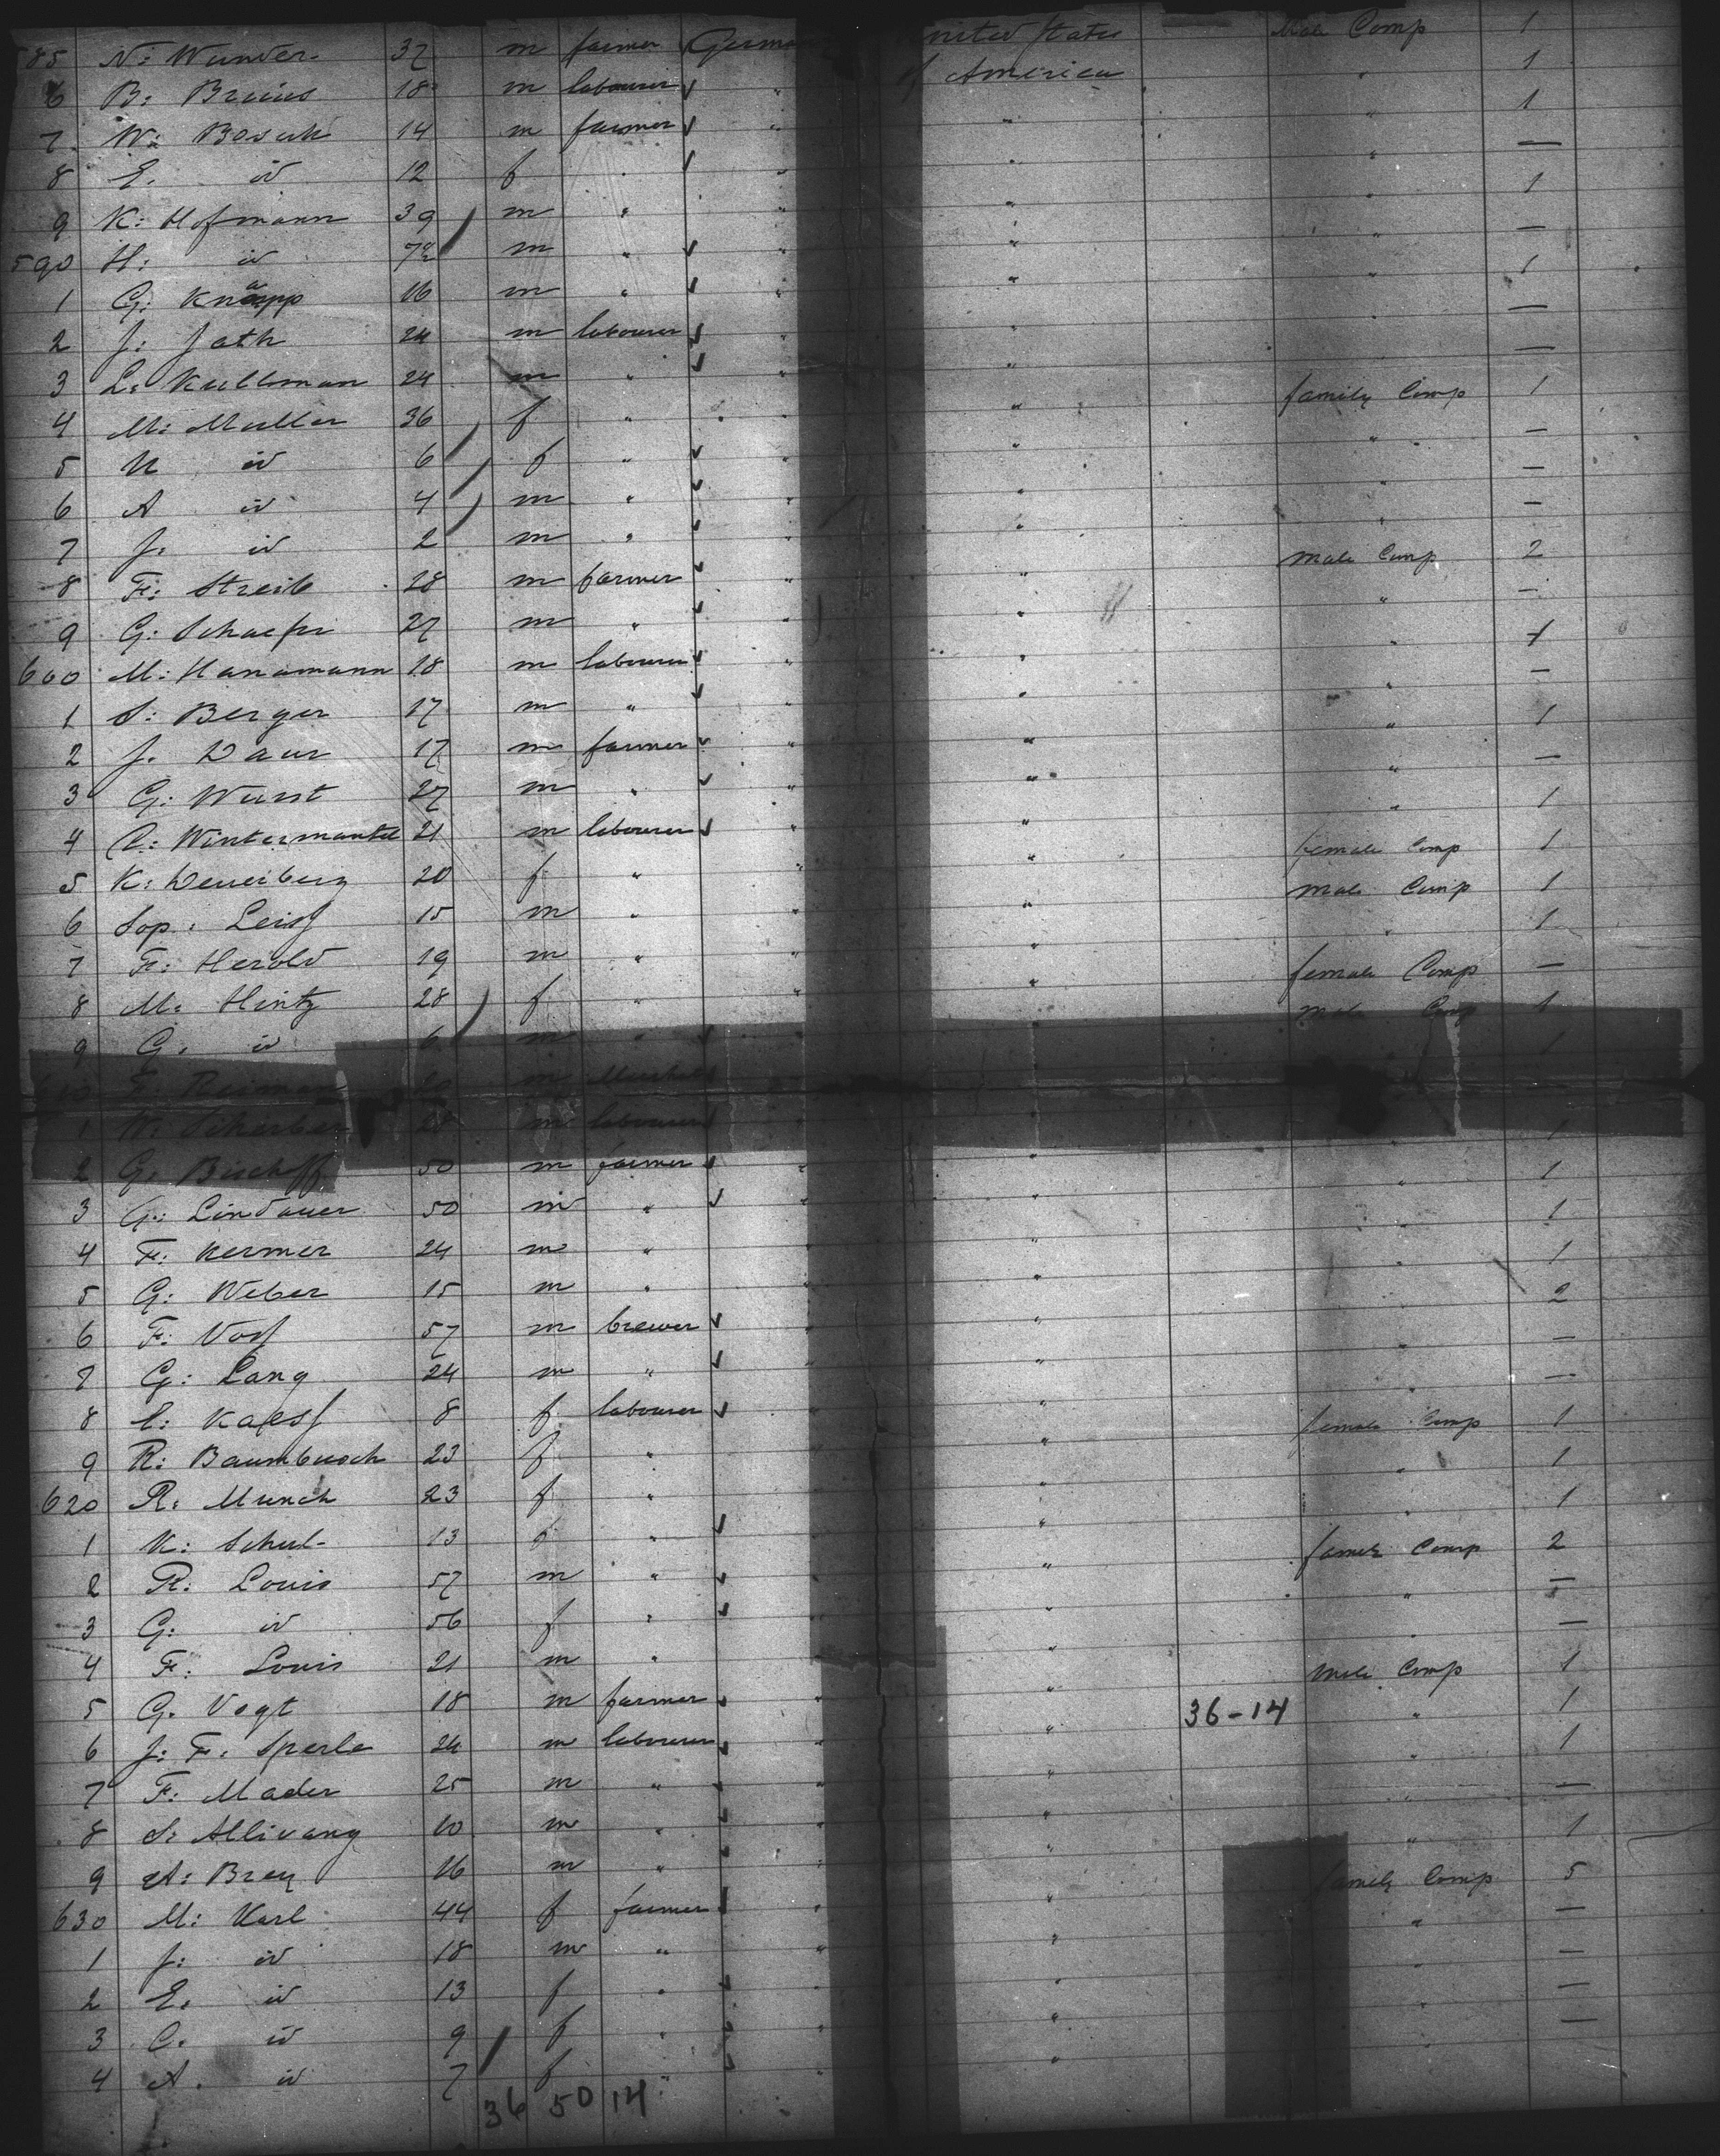 585 N: Wunder 37 m farmer German United States Male Comp 1
6 B: Bruns 18 m labourer " of America " 1
7 W: Bosch 14 m farmer " " " 1
8 E. id 12 f " " " " —
9 K: Hofmann 39 m " " " " 1
590 H: id m " " " " —
1 G: Knapp 16 m " " " " 1
2 J: Jath 24 m labourer " " " —
3 L: Kullman 24 m " " " " —
4 M: Muller 36 f " " " family Comp 1
5 id 6 f " " " " —
6 A id 4 m " " " " —
7 J. id 2 m " " " " —
8 F: Streib 28 m farmer " " male Comp 2
9 G: Schaefer 27 m " " " " —
600 M: Hanamann 18 m labourer " " " 1
1 S: Berger 17 m " " " " —
2 J. Daur 17 m farmer " " " 1
3 G: Wurst 27 m " " " " —
4 C: Wintermantel 21 m labourer " " " 1
5 K: 20 f " " " female Comp 1
6 Sop: Leiss 15 m " " " male Comp 1
7 F: Herold 19 m " " " " 1
8 M: Hintz 28 f " " " female Comp —
9 G. id 6 m " male Comp 1
610 F. Reiman m 1
1 W: Scherber 28 m labourer
2 G. Bischoff 50 m farmer " " 1
3 G: Lindauer 50 m " " " " 1
4 F: Kermer 24 m " " " 1
5 G: Weber 15 m " " " " 1
6 F: Voss 57 m brewer " " " 2
7 G: Lang 24 m " " " " —
8 E: Kapss 8 f labourer " " —
9 R: Baumbusch 23 f " " female Comp 1
620 R: Munch 23 f " " " 1
1 K: Schul- 13 f " " " 1
2 R: Louis 57 m " " family Comp 2
3 G: id 56 f " " " —
4 F: Louis 21 m " " " —
5 G. Vogt 18 m farmer " " male Comp 1
6 J: F: Sperle 24 m labourer " " 36-14 " 1
7 F: Mader 25 m " " " " 1
8 S: Allivang 10 m " " " " —
9 A: Brey 16 m " " " " 1
630 M: Karl 44 f farmer " " family Comp 5
1 J: id 18 m " " " " —
2 E. id 13 f " " " " —
3 C. id 9 f " " " " —
4 A. id 7 f " " " " —
36 50 14